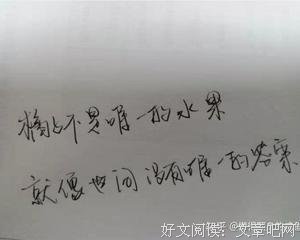 橘子不是唯一的水果
就像世间没有唯一的答案
好文阅读：文章吧网